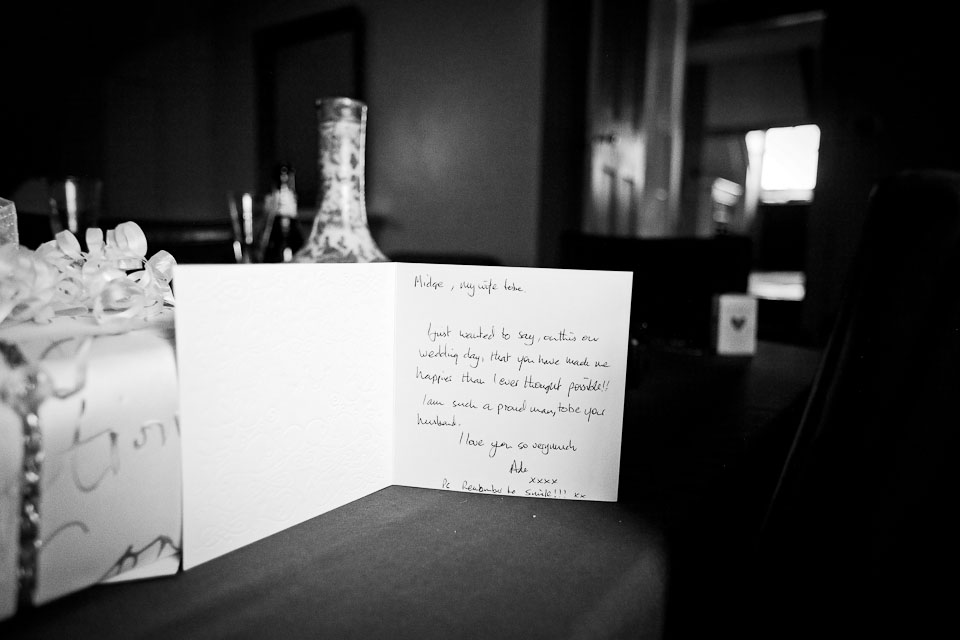 Midge, my wife to be.
I just wanted to say, on this our
wedding day, that you have made me
happier than I ever thought possible!!
I am such a proud man, to be your
husband.
I love you so very much
Ade
xxxx
Ps Remember to smile!!! xx